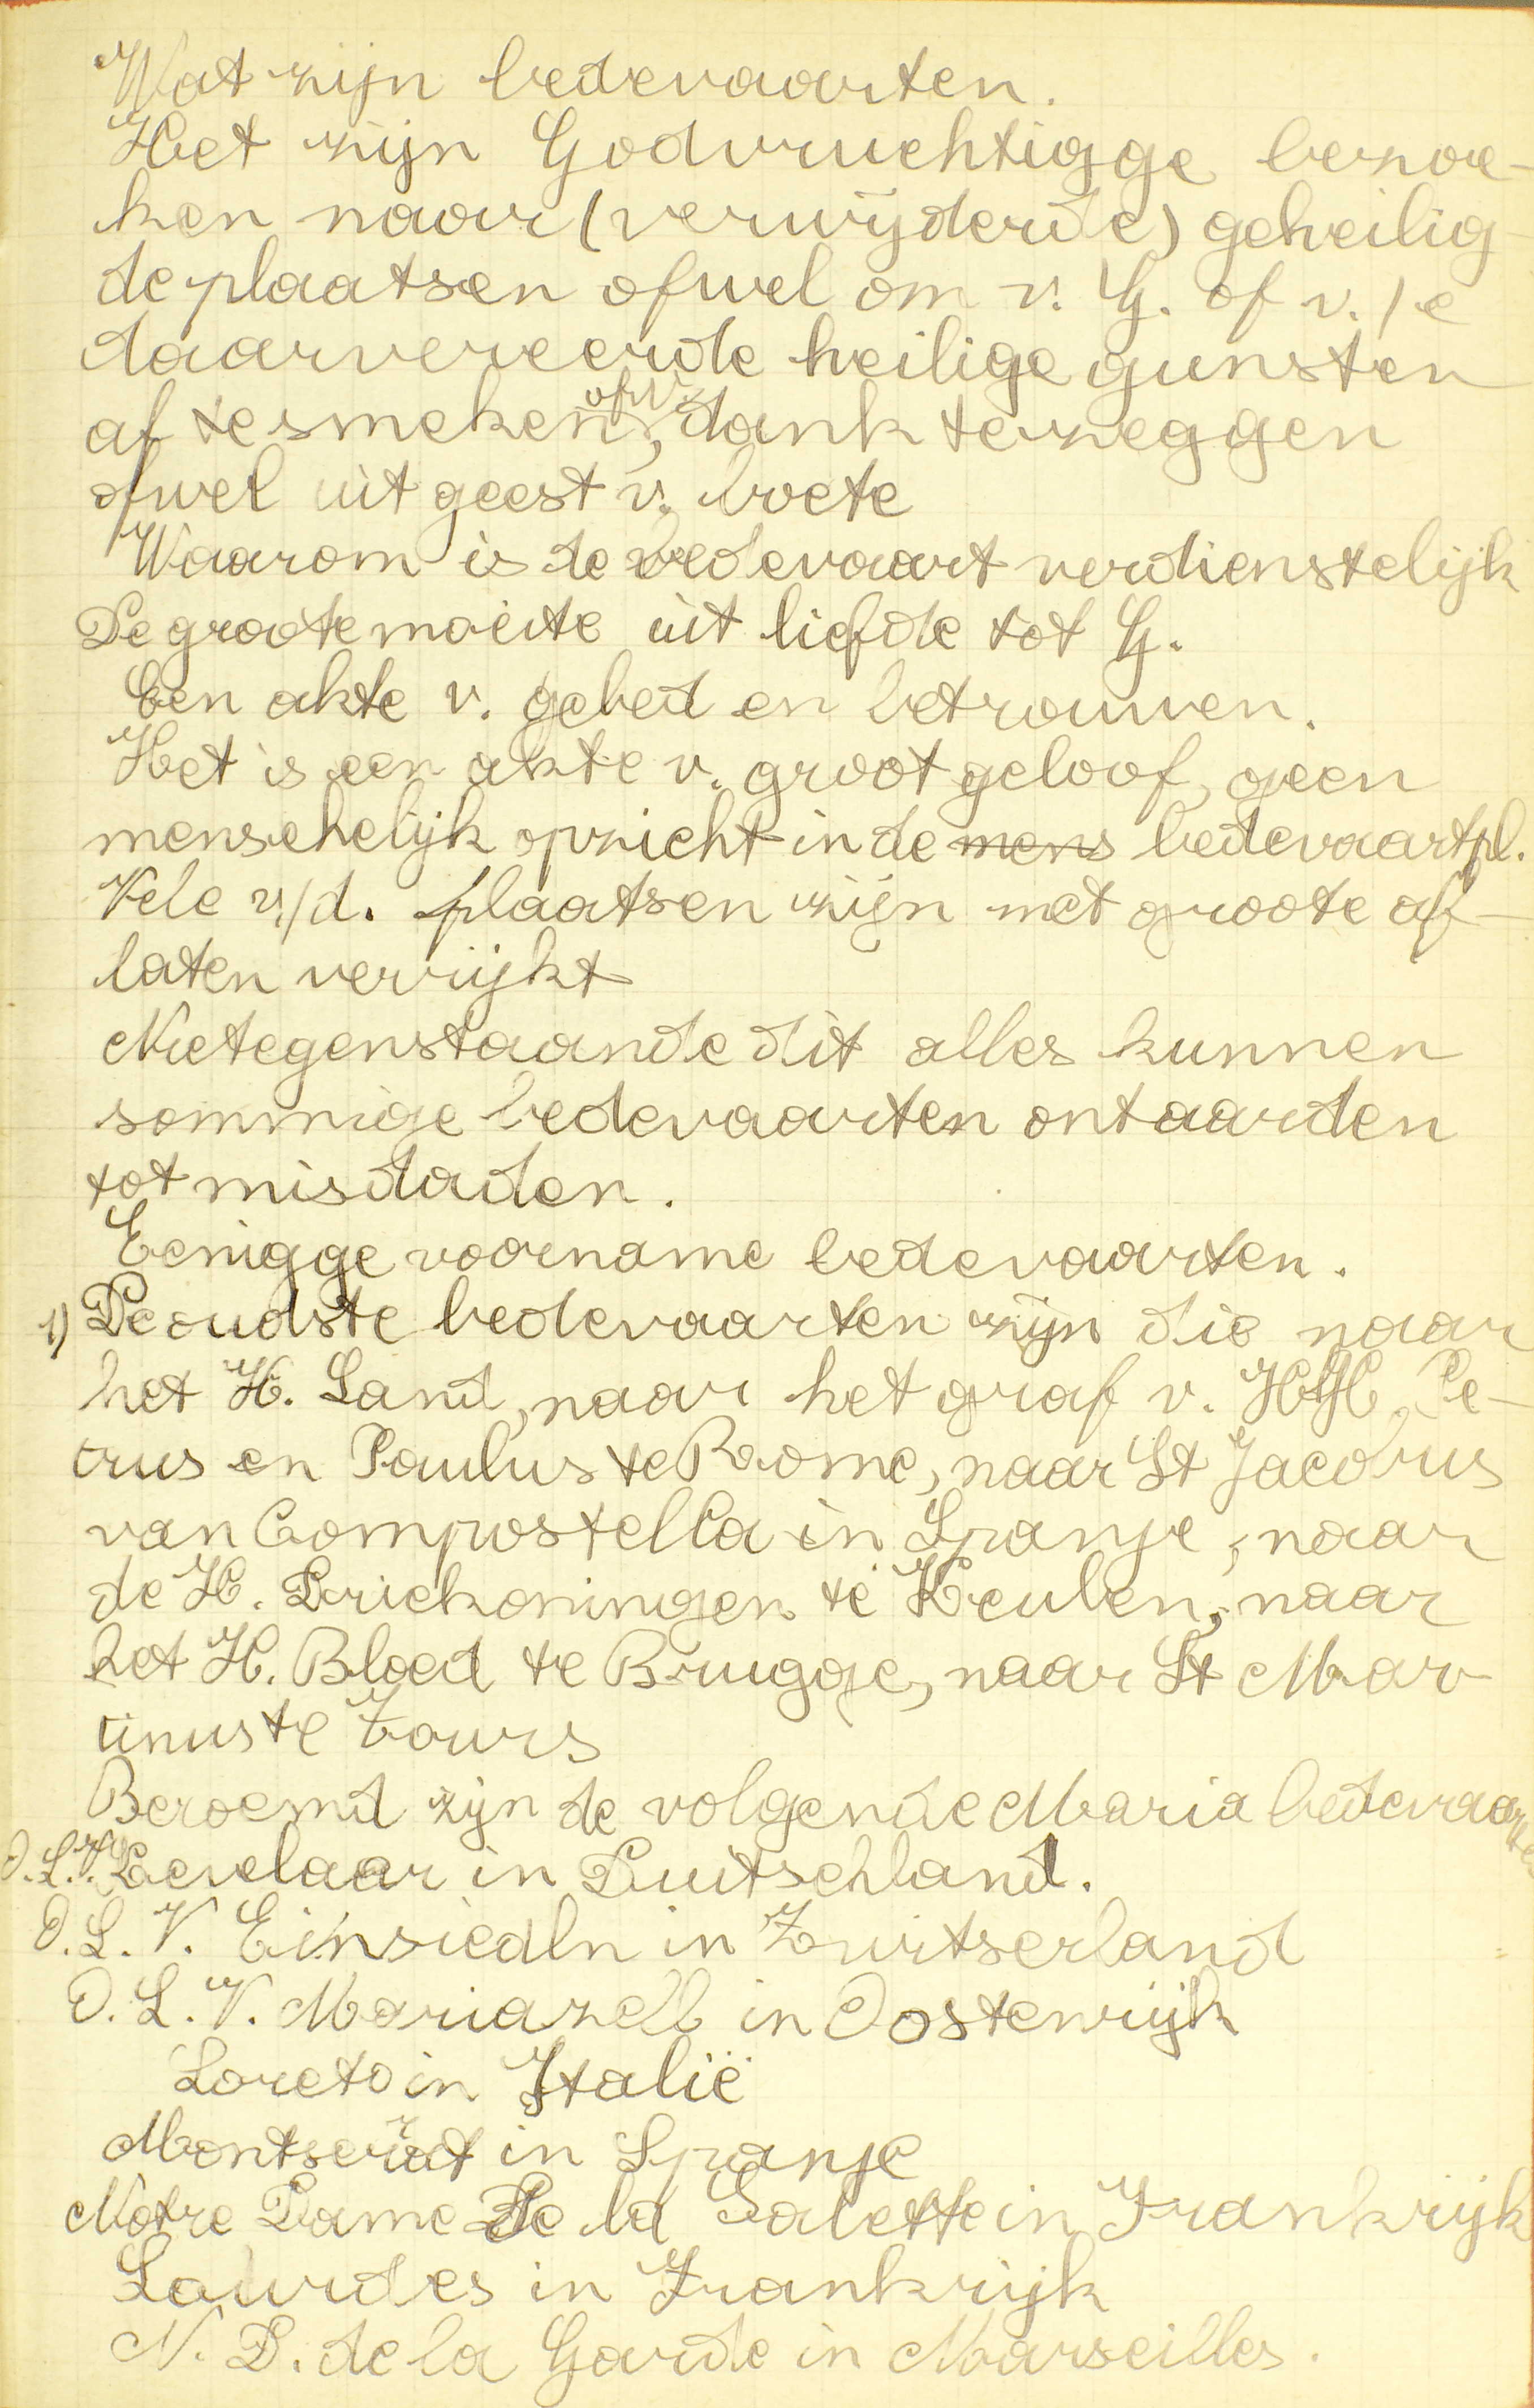 Wat zijn bedevaarten.
Het zijn Godvruchtigge bezoe-
ken naar (verwijderde) geheilig-
de plaatsen ofwel om v. G. of v./e
daarvereerde heilige gunsten
af te smeken, ofw. dank te zeggen
ofwel uit geest v. boete
Waarom is de bedevaart verdienstelijk
De groote moeite uit liefde tot G.
Een akte v. gebed en betrouwen.
Het is een akte v. groot geloof, geen
menschelijk opzicht in de mens bedevaartpl.
Vele v/d. plaatsen zijn met groote af-
laten verrijkt
Nietegenstaande dit alles kunnen
sommige bedevaarten ontaarden
tot misdaden.
Eenigge voorname bedevaarten.
1) De oudste bedevaarten zijn die naar
het H. Land, naar het graf v. HH. Pe-
trus en Paulus te Roome, naar St Jacobus
van Compostella in Spanje, naar
de H. Driekoningen te Keulen, naar
het H. Bloed te Brugge, naar St Mar-
tinus te Tours
Beroemd zijn de volgende Maria bedevaarten
O.L.V. Kevelaar in Duitschland.
O.L.V. Einsiedln in Zwitserland
O.L.V. Mariazell in Oostenrijk
Loreto in Italië
Montserrat in Spanje
Notre Dame De la Salette in Frankrijk
Lourdes in Frankrijk
N. D. de la Garde in Marseilles.